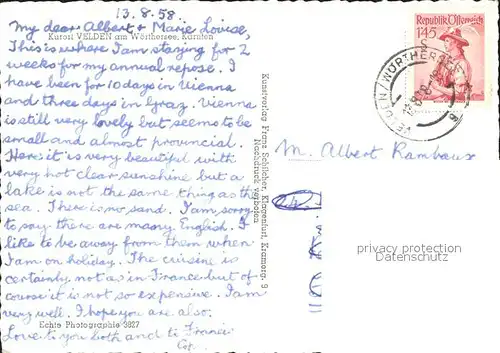 13.8.58.
My dear Albert & Marie Louise,
Kurort VELDEN am Wörthersee, Kärnten
This is where I am staying for 2
weeks for my annual repose. I
have been for 10 days in Vienna
and three days in Graz. Vienna
is still very lovely but seems to be
small and almost provincial.
Here it is very beautiful with
very hot clear sunshine but a
lake is not the same thing as the
sea. There is no sand. I am sorry
to say there are many English. I
like to be away from them when
I am on holiday. The cuisine is
certainly not as in France but of
course it is not so expensive. I am
very well. I hope you are also.
Echte Photographie 3827
Love to you both and to Francis
Kunstverlag Franz Schilcher, Klagenfurt, Kramerg. 9
Nachdruck verboten
Republik Österreich
1.45
S
VELDEN / WÖRTHERSEE
M. Albert Rambaux
privacy protection
watermark